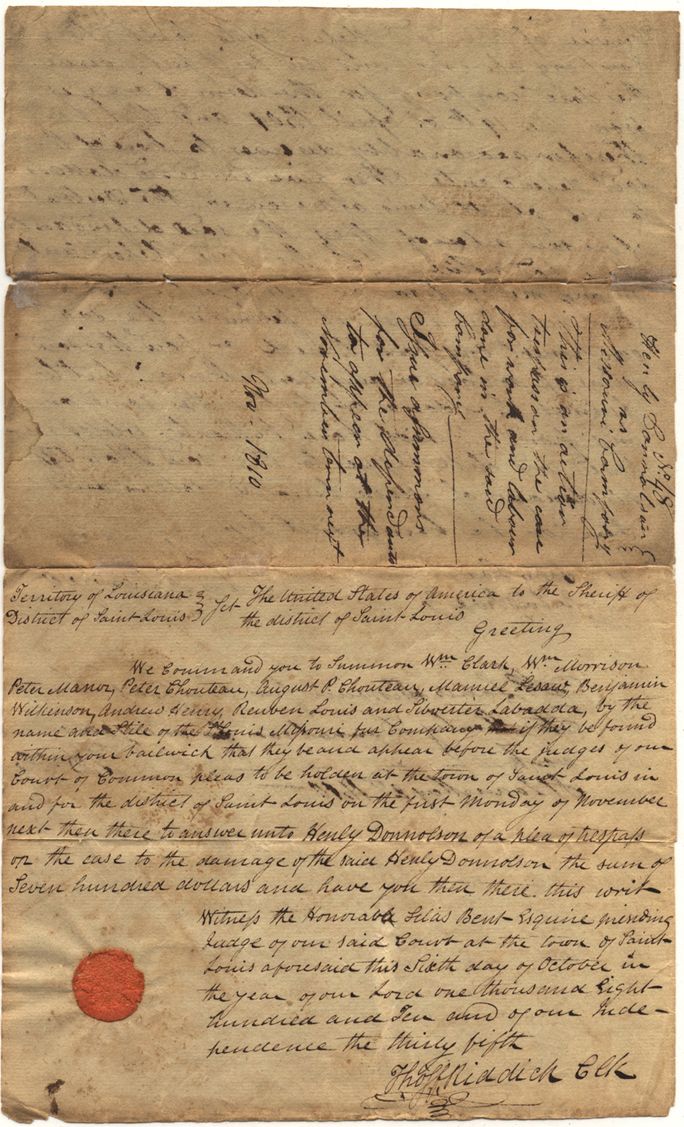 No 18
Henly Donnolson
vs
Missouri Company
This is an action
trespass on the case
for work and labour
done in the said
Company
Issue a Summons
for the defendants
to appear at the
November term next
Nov. 1810
Territory of Louisiana } Sct The United States of America to the Sheriff of
District of Saint Louis } the district of Saint Louis
Greeting
We Command you to Summon Wm Clark, Wm Morrison
Peter Manor, Peter Chouteau, August P. Chouteau, Manuel Lesaw, Benjamin
Wilkinson, Andrew Henry, Reuben Louis and Silvester Labadda, by the
name and Stile of the St Louis Missouri fur Company if they be found
within your bailwick that they be and appear before the judges of our
Court of Common pleas to be holden at the town of Saint Louis in
and for the district of Saint Louis on the first Monday of November
next then there to answer unto Henly Donnolson of a plea of trespass
on the case to the damage of the said Henly Donnolson the sum of
Seven hundred dollars and have you then there this writ
Witness the Honorable Silas Bent Esquire presiding
Judge of our said Court at the town of Saint
Louis aforesaid this Sixth day of October in
the year of our Lord one thousand Eight
hundred and Ten and of our Inde-
pendence the thirty fifth
Thos F Riddick Clk